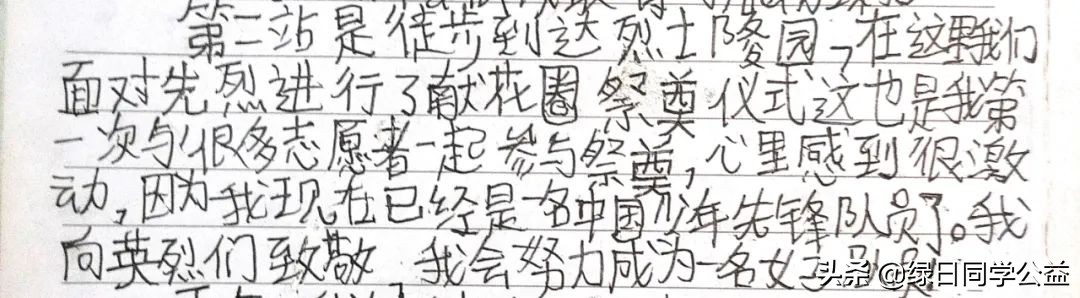 第二站是徒步到达烈士陵园,在这里我们
面对先烈进行了献花圈祭奠仪式这也是我第
一次与很多志愿者一起参与祭奠,心里感到很激
动,因为我现在已经是一名中国少年先锋队员了。我
向英烈们致敬,我会努力成为一名女子
头条 @绿日同学公益